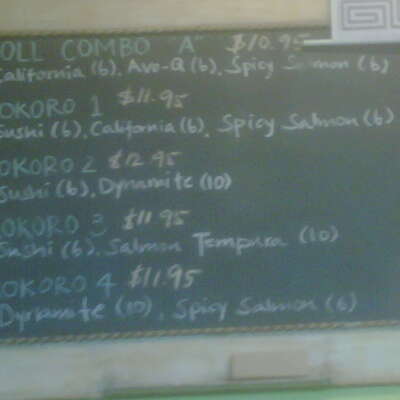 OLL COMBO "A" $10.95
California (6), Avo-Q (6), Spicy Salmon (6)
OKORO 1 $11.95
Sushi (6), California (6), Spicy Salmon (6)
OKORO 2 $12.95
Sushi (6), Dynamite (10)
OKORO 3 $11.95
Sushi (6), Salmon Tempura (10)
OKORO 4 $11.95
Dynamite (10), Spicy Salmon (6)